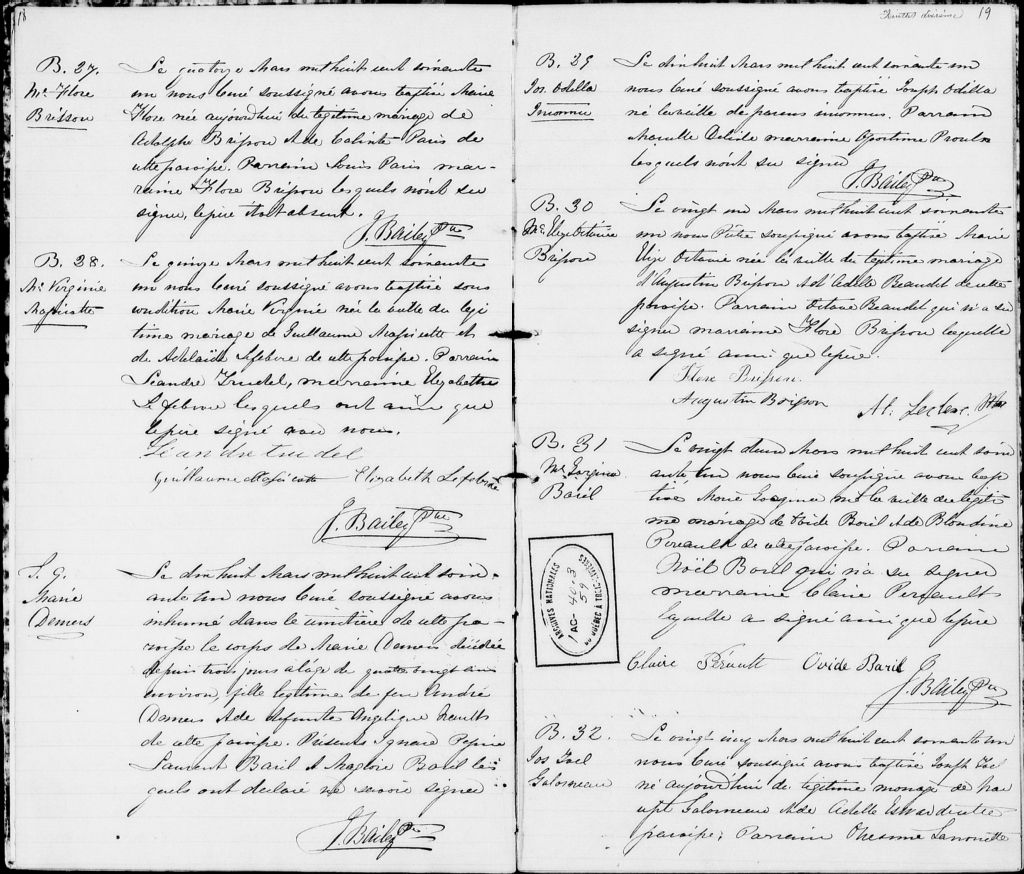 18
B. 27.
Mie Flore
Brisson
Le quatorze Mars mil huit cent soixante
un nous Curé soussigné avons baptisé Marie
Flore née aujourd'hui du légitime mariage de
Adolphe Brisson & de Calixte Paris de
cette paroisse. Parrain Louis Paris mar-
raine Flore Brisson lesquels n'ont su
signer, le père étant absent.
J. Bailey Ptre
B. 28.
Mie Virginie
Massicotte
Le quinze Mars mil huit cent soixante
un nous Curé soussigné avons baptisé sous
condition Marie Virginie née la veille du légi
time mariage de Guillaume Massicotte et
de Adelaide Lefebvre de cette paroisse. Parrain
Léandre Trudel, marraine Elizabeth
Lefebvre lesquels ont ainsi que
le père signé avec nous.
Léandre trudel
Guillaume Massicotte Elizabeth Lefebvre
J. Bailey Ptre
S. 9.
Marie
Demers
Le dix huit Mars mil huit cent soix-
ante un nous Curé soussigné avons
inhumé dans le cimitière de cette pa-
roisse le corps de Marie Demers décédée
depuis trois jours à l'âge de quatre vingt ans
environ, fille légitime de feu André
Demers & de défunte Angélique
de cette paroisse. Présents Ignace Pepin
Laurent Baril & Magloire Baril les-
quels ont déclaré ne savoir signer
J. Bailey Ptre
Feuillet dixième 19
B. 29
Jos. Odilla
Inconnu
Le dix huit Mars mil huit cent soixante un
nous Curé soussigné avons baptisé Joseph Odilla
né la veille de parens inconnus. Parrain
Délisle marraine Proulx
lesquels n'ont su signer
J. Bailey Ptre
B. 30
Mie Octavie
Brisson
Le vingt un Mars mil huit cent soixante
un nous Prêtre soussigné avons baptisé Marie
Octavie née la veille du légitime mariage
d'Augustin Brisson & d'Adelle Beaudet de cette
paroisse. Parrain Octave Beaudet qui n'a su
signer marraine Flore Brisson laquelle
a signé ainsi que le père.
Flore Brisson.
Augustin Brisson
Al. Leclerc Ptre
B. 31
Mie Georgina
Baril
Le vingt deux Mars mil huit cent soix
ante un nous Curé soussigné avons bap
tisé Marie Georgina née la veille du légiti
me mariage de Ovide Baril & de Blandine
Perault de cette paroisse. Parrain
Noël Baril qui n'a su signer
marraine Claire Perault
laquelle a signé ainsi que le père
Claire Pérault Ovide Baril
J. Bailey Ptre
ARCHIVES NATIONALES
1AC- 40-3
59
DU QUÉBEC À TROIS-RIVIÈRES
B. 32.
Jos Joel
Galarneau
Le vingt cinq Mars mil huit cent soixante un
nous Curé soussigné avons baptisé Joseph Joel
né aujourd'hui du légitime mariage de
Galarneau & de Adelle de cette
paroisse; Parrain Onesime Lanouette